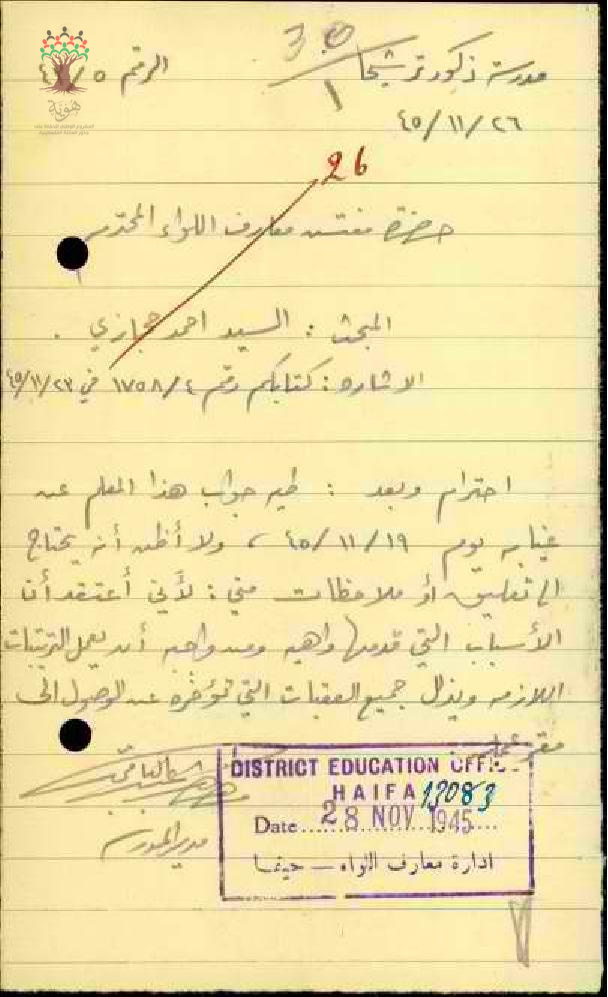 مدرسة ذكور ترشيحا
الرقم
٤٥/١١/٢٦
26
حضرة مفتش معارف اللواء المحترم
المبحث : السيد احمد حجازي .
الاشارة : كتابكم رقم ١٧٥٨/٤ في ٤٥/١١/٢٣
احترام وبعد : طيه جواب هذا المعلم عن
غيابه يوم ٤٥/١١/١٩ ، ولا أظن أنه يحتاج
الى تعليق أو ملاحظات مني : لأني أعتقد أن
الأسباب التي قدمها واهيه ومن واجبه أن يعمل الترتيبات
اللازمه ويذلل جميع العقبات التي تؤخره عن الوصول الى
مقر عمله
مدير المدرسة
DISTRICT EDUCATION OFFICE
HAIFA 13083
Date 28 NOV 1945
ادارة معارف اللواء — حيفا
هوية